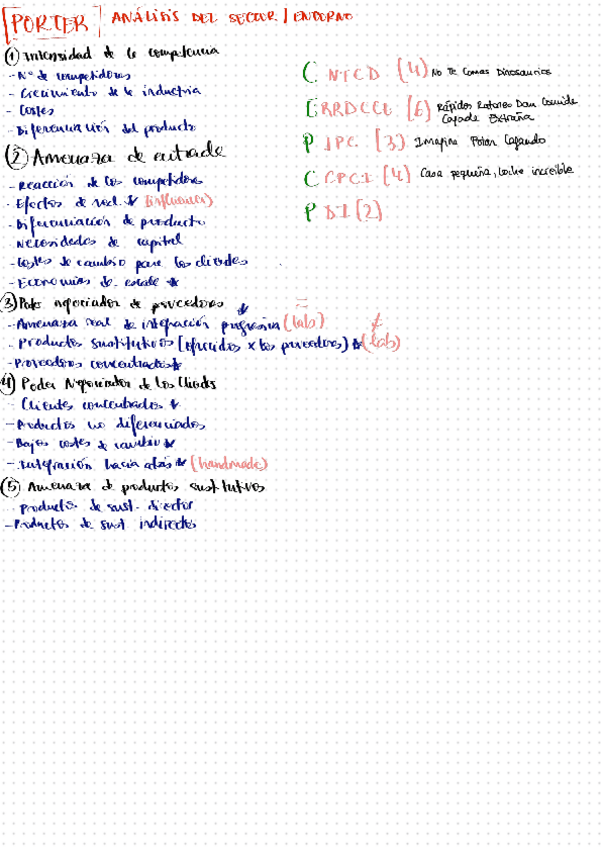 [PORTER] ANÁLISIS DEL SECTOR / ENTORNO
(1) Intensidad de la competencia
- Nº de competidores
- Crecimiento de la industria
- Costes
- Diferenciación del producto
(2) Amenaza de entrada
- Reacción de los competidores
- Efectos de red (influencer)
- Diferenciación de producto
- Necesidades de capital
- Costes de cambio para los clientes
- Economías de escala
(3) Poder negociador de proveedores
- Amenaza real de integración progresiva (lab)
- Productos sustitutivos [ofrecidos x los proveedores] (lab)
- Proveedores concentrados
(4) Poder Negociador de los Clientes
- Clientes concentrados
- Productos no diferenciados
- Bajos costes de cambio
- Integración hacia atrás (handmade)
(5) Amenaza de productos sustitutivos
- Productos de sust. director
- Productos de sust. indirectos
C NTCD (4) No Te Comas Dinosaurios
(6) Rápidos Ratones Dan Comida
Extraña
P IPC (3) Imagina Polar Cagando
C CPCI (4) Casa pequeña, increíble
P DI (2)